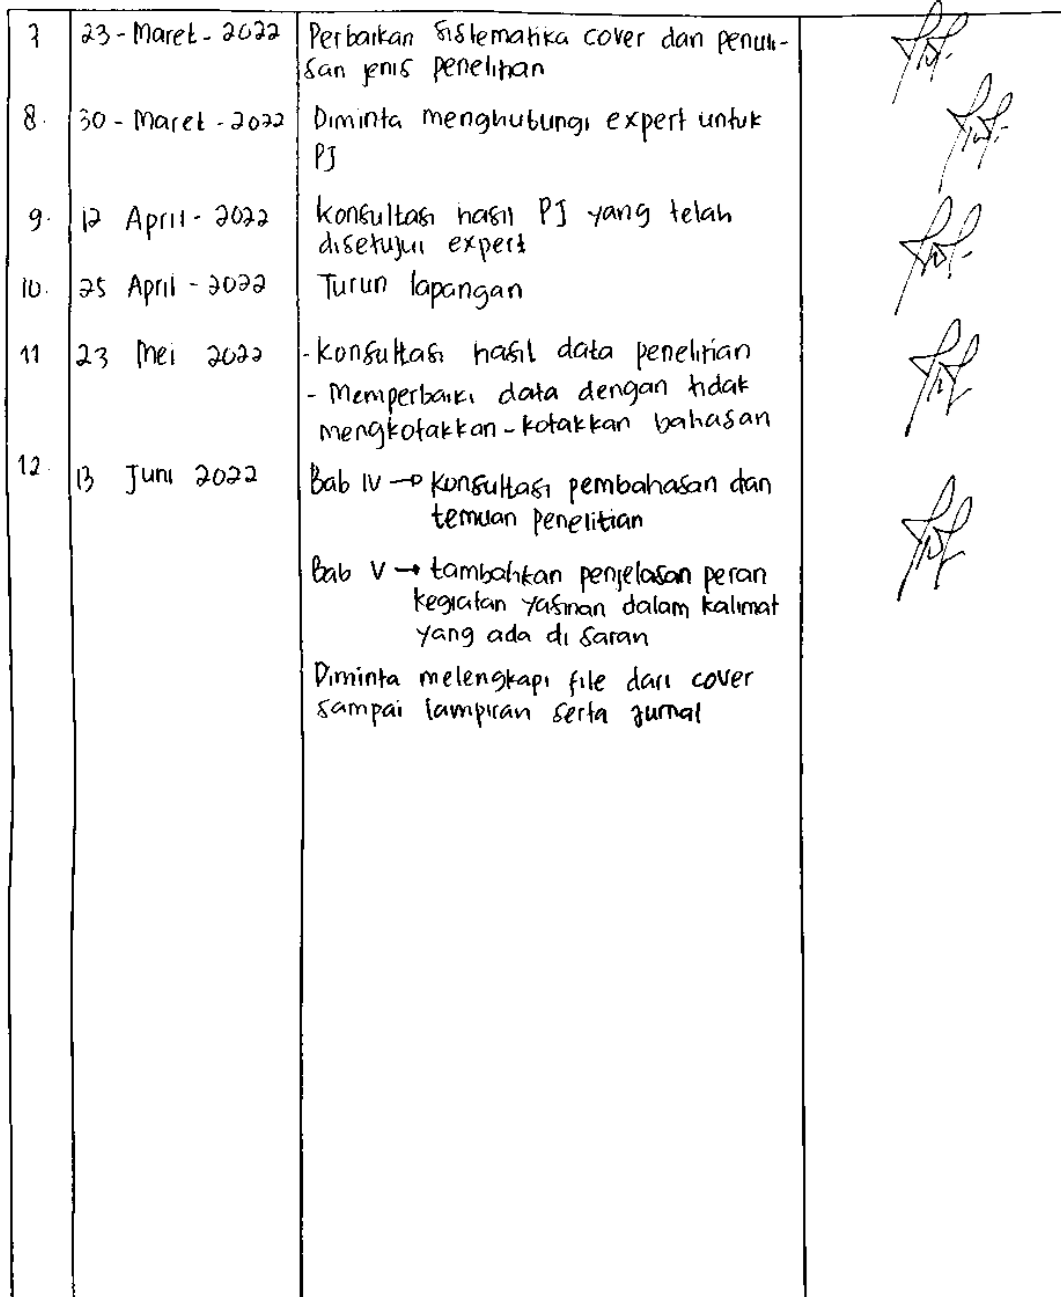 7 23-Maret-2022 Perbaikan sistematika cover dan penuli-
san jenis penelitian
8. 30-Maret-2022 Diminta menghubungi expert untuk
PJ
9. 12 April-2022 konsultasi hasil PJ yang telah
disetujui expert
10. 25 April-2022 Turun lapangan
11 23 Mei 2022 -konsultasi hasil data penelitian
- Memperbaiki data dengan tidak
mengkotakkan-kotakkan bahasan
12. 13 Juni 2022 Bab IV → konsultasi pembahasan dan
temuan penelitian
Bab V → tambahkan penjelasan peran
kegiatan yasinan dalam kalimat
yang ada di saran
Diminta melengkapi file dari cover
sampai lampiran serta jurnal